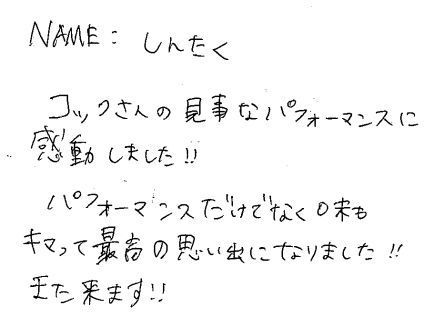 NAME: しんたく
コックさんの見事なパフォーマンスに
感動しました!!
パフォーマンスだけでなく味も
キマって最高の思い出になりました!!
また来ます!!